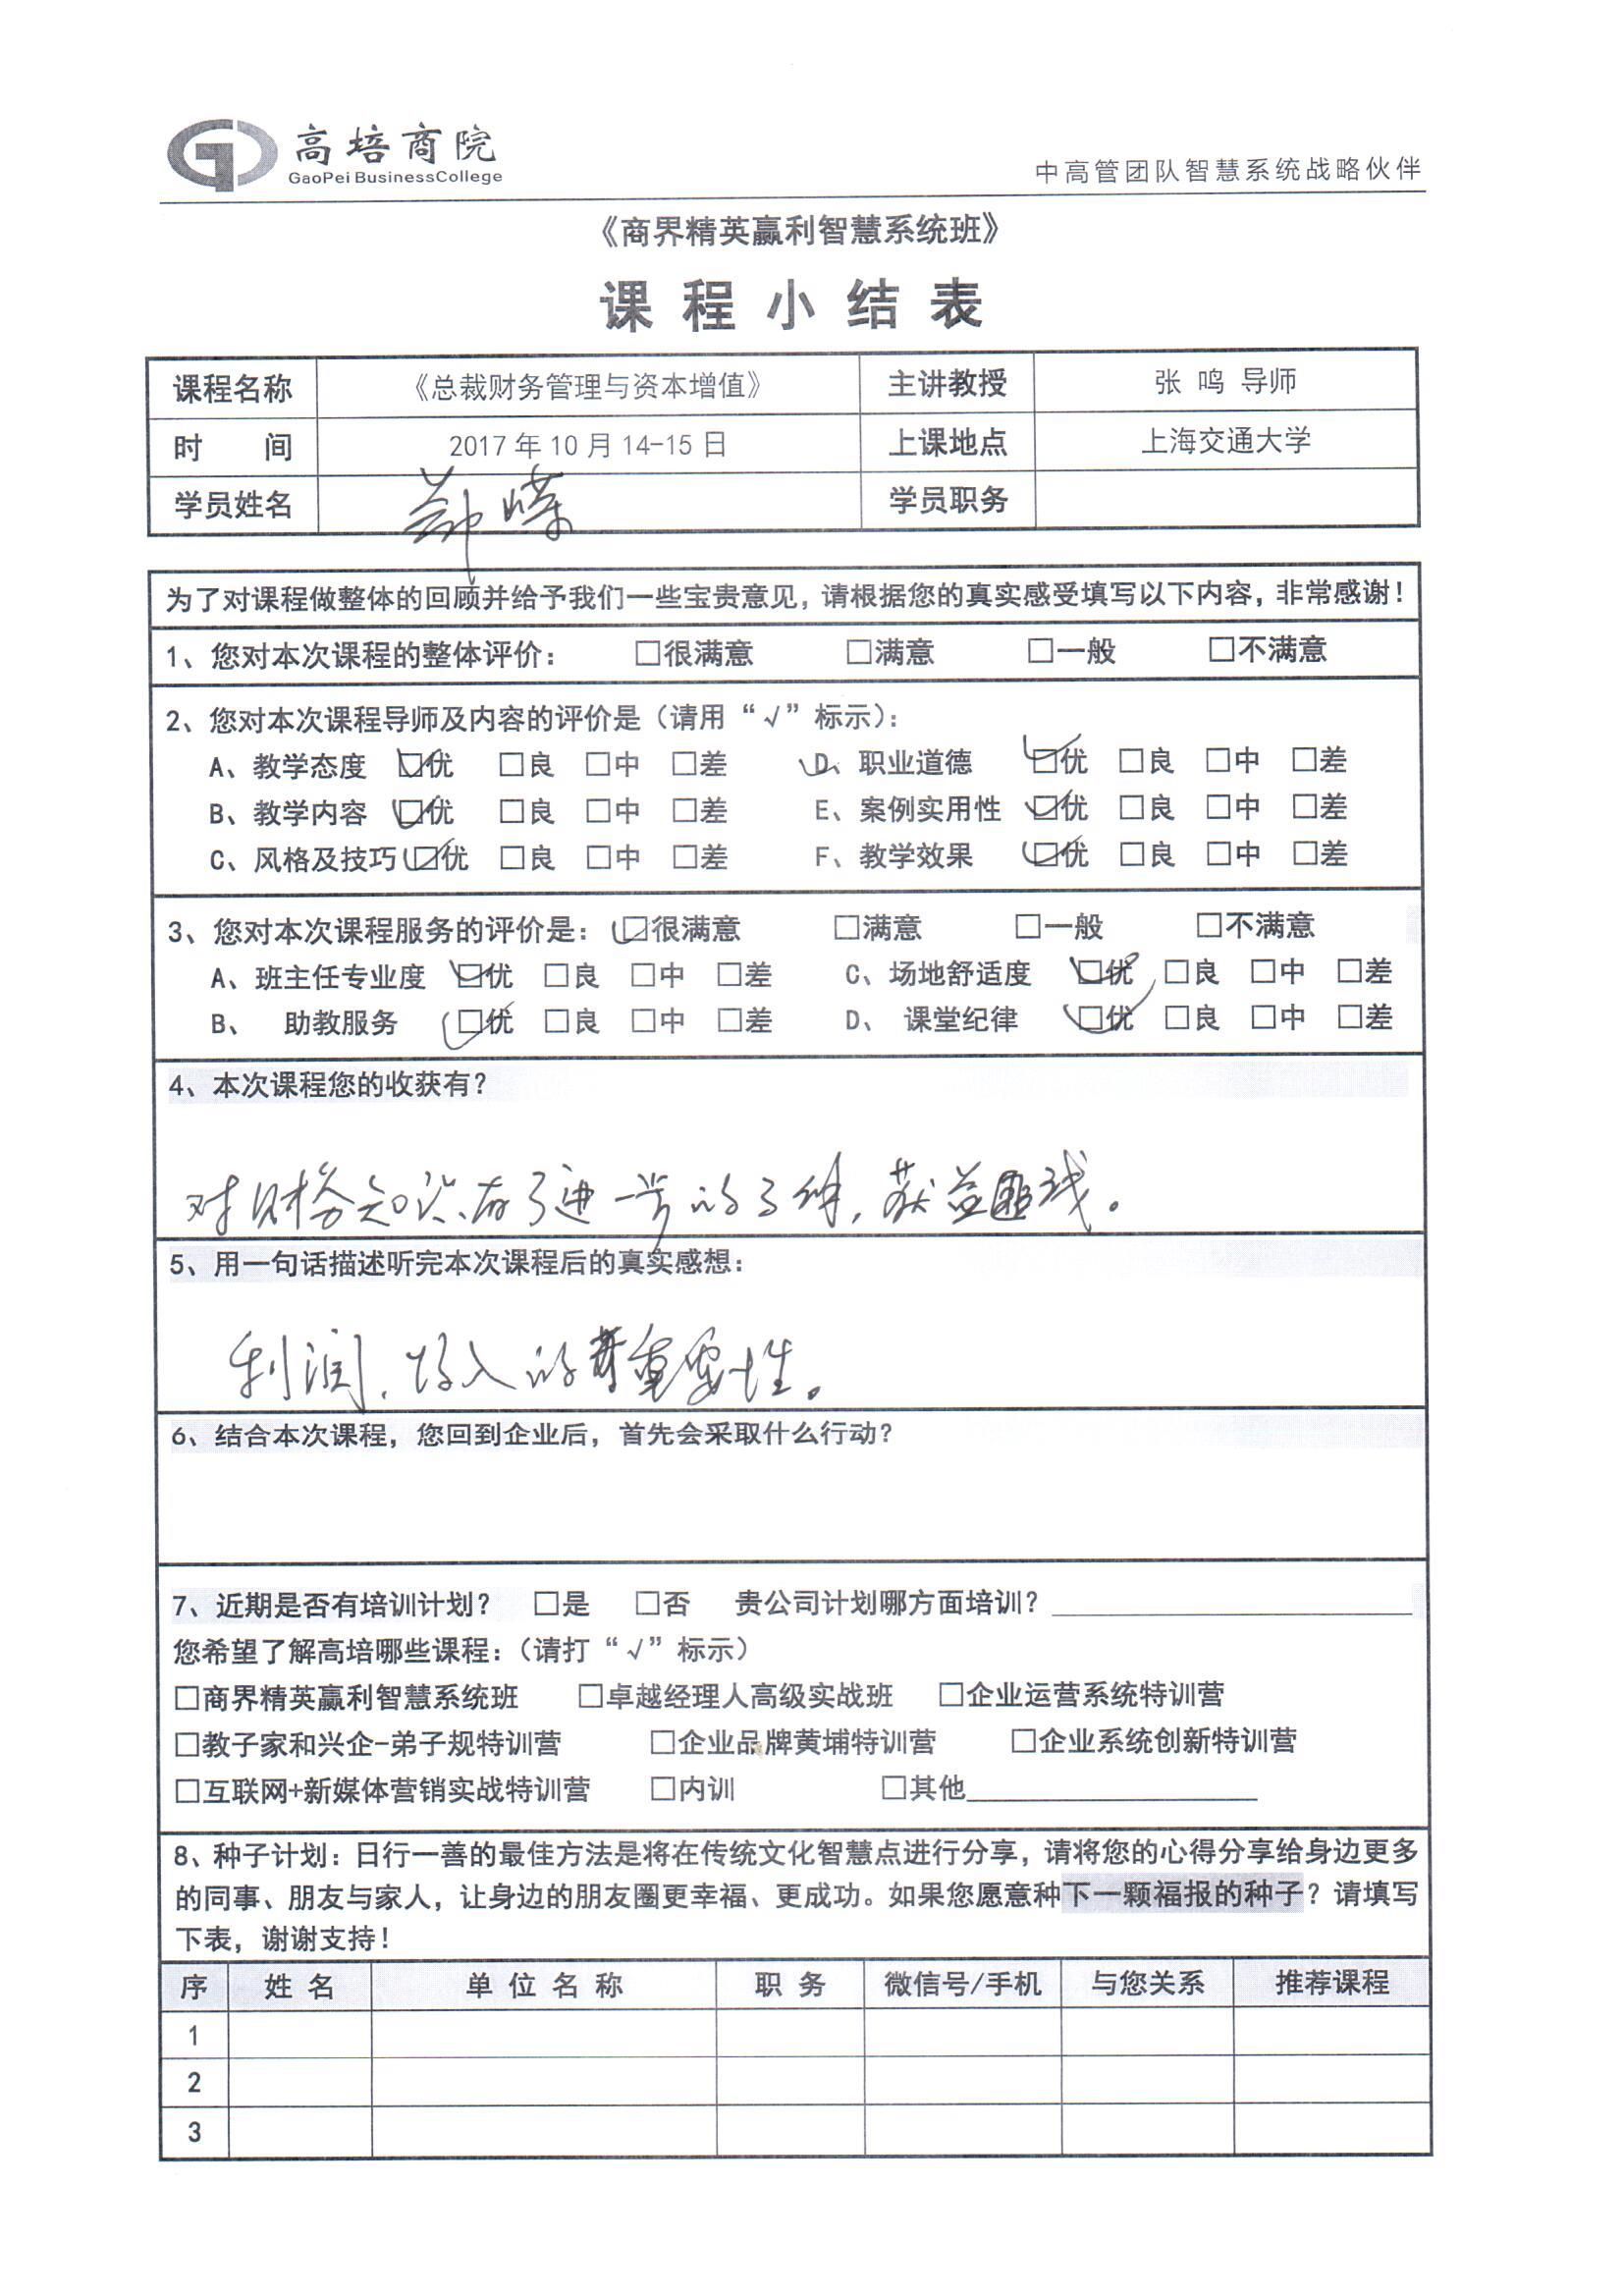 高培商院
GaoPei BusinessCollege
中高管团队智慧系统战略伙伴
《商界精英赢利智慧系统班》
课程小结表
课程名称 《总裁财务管理与资本增值》 主讲教授 张 鸣 导师
时 间 2017年10月14-15日 上课地点 上海交通大学
学员姓名 学员职务
为了对课程做整体的回顾并给予我们一些宝贵意见，请根据您的真实感受填写以下内容，非常感谢！
1、您对本次课程的整体评价： □很满意 □满意 □一般 □不满意
2、您对本次课程导师及内容的评价是（请用“√”标示）：
A、教学态度 ☑优 □良 □中 □差 D、职业道德 ☑优 □良 □中 □差
B、教学内容 ☑优 □良 □中 □差 E、案例实用性 ☑优 □良 □中 □差
C、风格及技巧 ☑优 □良 □中 □差 F、教学效果 ☑优 □良 □中 □差
3、您对本次课程服务的评价是： ☑很满意 □满意 □一般 □不满意
A、班主任专业度 ☑优 □良 □中 □差 C、场地舒适度 ☑优 □良 □中 □差
B、 助教服务 ☑优 □良 □中 □差 D、 课堂纪律 ☑优 □良 □中 □差
4、本次课程您的收获有？
对财务知识有了进一步的了解，获益匪浅。
5、用一句话描述听完本次课程后的真实感想：
利润、收入的重要性。
6、结合本次课程，您回到企业后，首先会采取什么行动？
7、近期是否有培训计划？ □是 □否 贵公司计划哪方面培训？
您希望了解高培哪些课程：（请打“√”标示）
□商界精英赢利智慧系统班 □卓越经理人高级实战班 □企业运营系统特训营
□教子家和兴企-弟子规特训营 □企业品牌黄埔特训营 □企业系统创新特训营
□互联网+新媒体营销实战特训营 □内训 □其他
8、种子计划：日行一善的最佳方法是将在传统文化智慧点进行分享，请将您的心得分享给身边更多
的同事、朋友与家人，让身边的朋友圈更幸福、更成功。如果您愿意种下一颗福报的种子？请填写
下表，谢谢支持！
序 姓 名 单 位 名 称 职 务 微信号/手机 与您关系 推荐课程
1
2
3